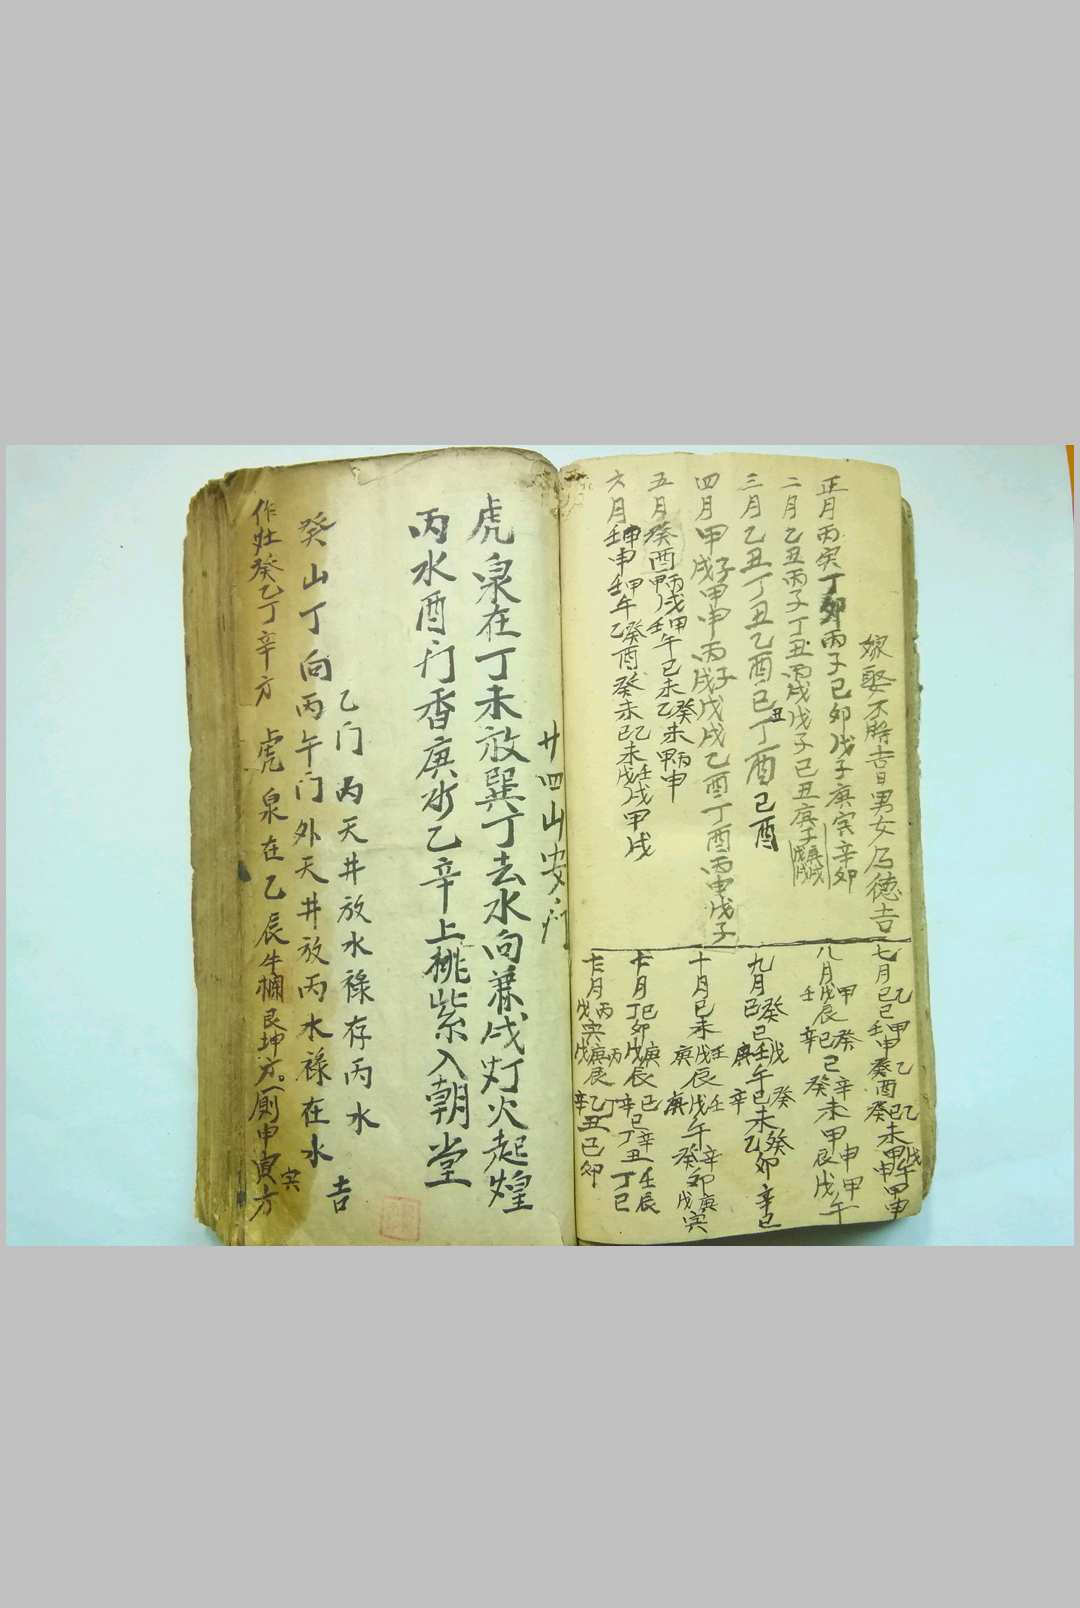 嫁娶不将吉日男女合德吉
正月丙寅丁卯丙子己卯戊子庚寅辛卯
二月乙丑丙子丁丑丙戌戊子己丑庚子戊戌庚戌
三月乙丑丁丑乙酉己丑丁酉己酉
四月甲戌甲子甲申丙戌丙子戊戌乙酉丁酉丙申戊子
五月癸酉甲戌丙戌甲午壬午己未乙未癸未甲申丙申
六月壬申甲申壬午甲午乙酉癸酉癸未乙未己未戊戌壬戌甲戌
七月乙巳己巳甲申壬申乙酉癸酉乙未癸未己未甲午戊午甲申
八月戊辰甲辰壬辰辛巳癸巳己巳辛未癸未甲申甲辰甲午戊午
九月己巳癸巳戊午庚午壬午己未癸未辛未乙卯癸卯辛巳
十月己未壬辰戊辰庚辰壬午戊午庚午癸卯辛卯戊寅庚寅
十一月丁卯己卯庚辰戊辰丙辰己巳辛巳丁丑辛丑壬辰丁巳
十二月丙寅戊寅庚辰戊辰乙丑辛丑己卯
廿四山安门
虎泉在丁未放巽丁去水向兼戌灯火起煌
丙水酉门香庚水乙辛上桃紫入朝堂
乙门丙天井放水禄存丙水吉
癸山丁向丙午门外天井放丙水禄在水
作灶癸乙丁辛方 虎泉在乙辰牛栏艮坤方。厕申寅方